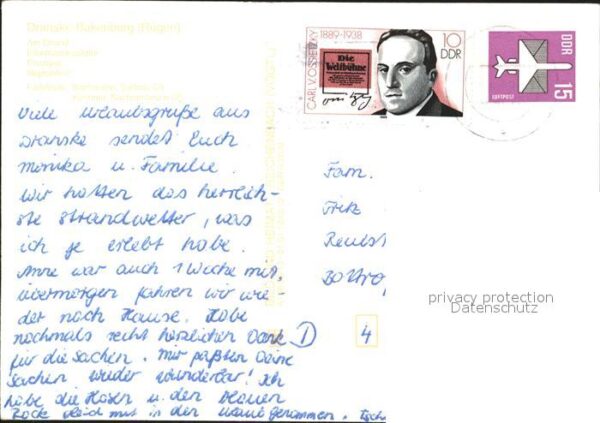 Dranske-Bakenberg (Rügen)
Viele Urlaubsgrüße aus
Dranske sendet Euch
Monika u. Familie.
Wir hatten das herrlich-
ste Strandwetter, was
ich je erlebt habe.
Anne war auch 1 Woche mit,
übermorgen fahren wir wie-
der nach Hause. Habe
nochmals recht herzlichen Dank
für die Sachen. Mir paßten Deine
Sachen wieder wunderbar! Ich
habe die Hosen u. den blauen
Rock gleich mit in den genommen.
CARL V. OSSIETZKY
1889-1938
Die
Weltbühne
10
DDR
DDR
LUFTPOST
15
Fam.
Fritz
Bottrop
D
4
privacy protection
Datenschutz